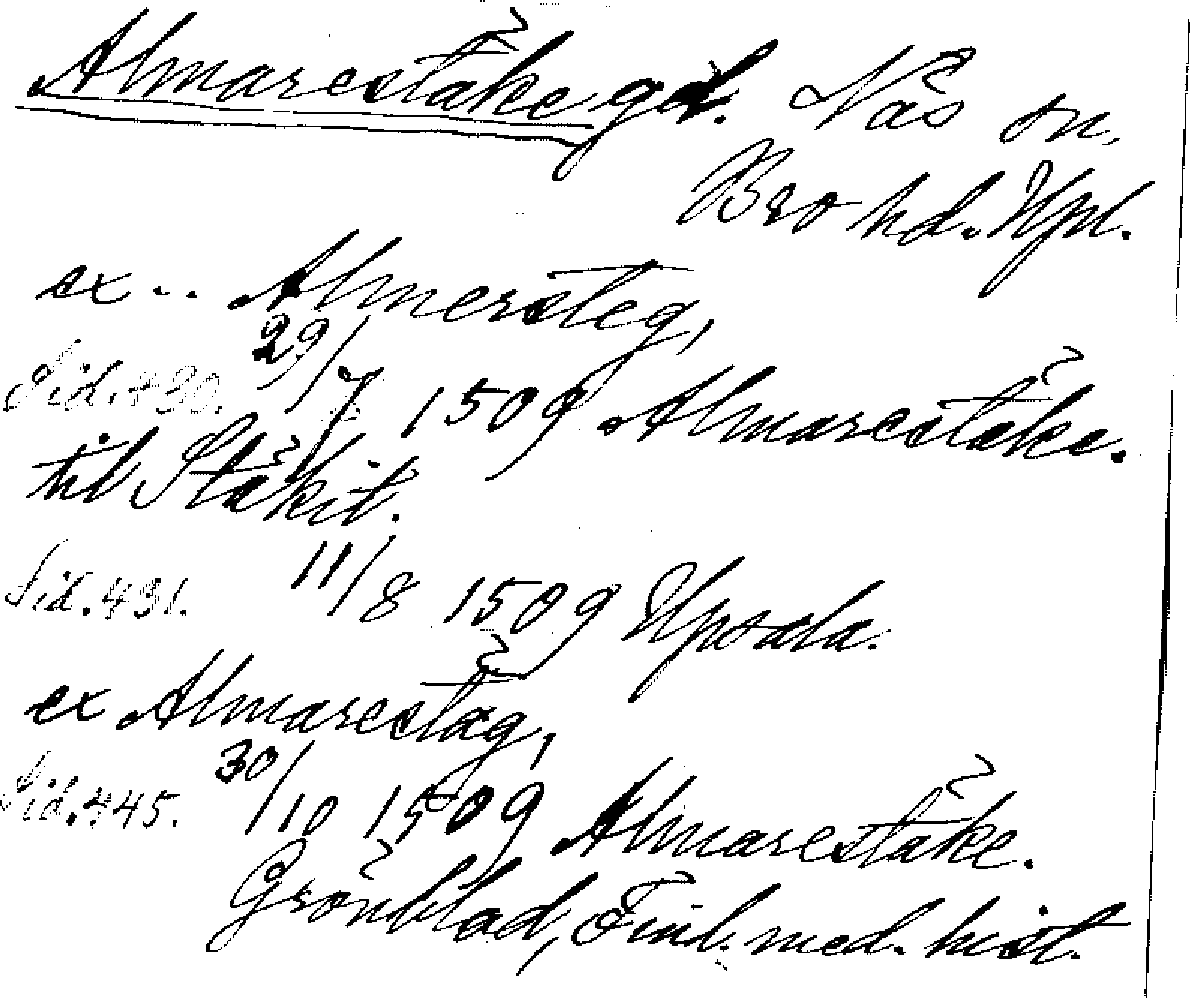 Almarestäke gd. Näs sn,
Bro hd. Upl.
ex .. Almersteg,
Sid. 430. 29/7 1509 Almarestäke.
til Stäkit.
Sid. 431. 11/8 1509 Upsala.
ex Almarestäg,
Sid. 445. 30/10 1509 Almarestäke.
Grönblad, Finl. med. hist.